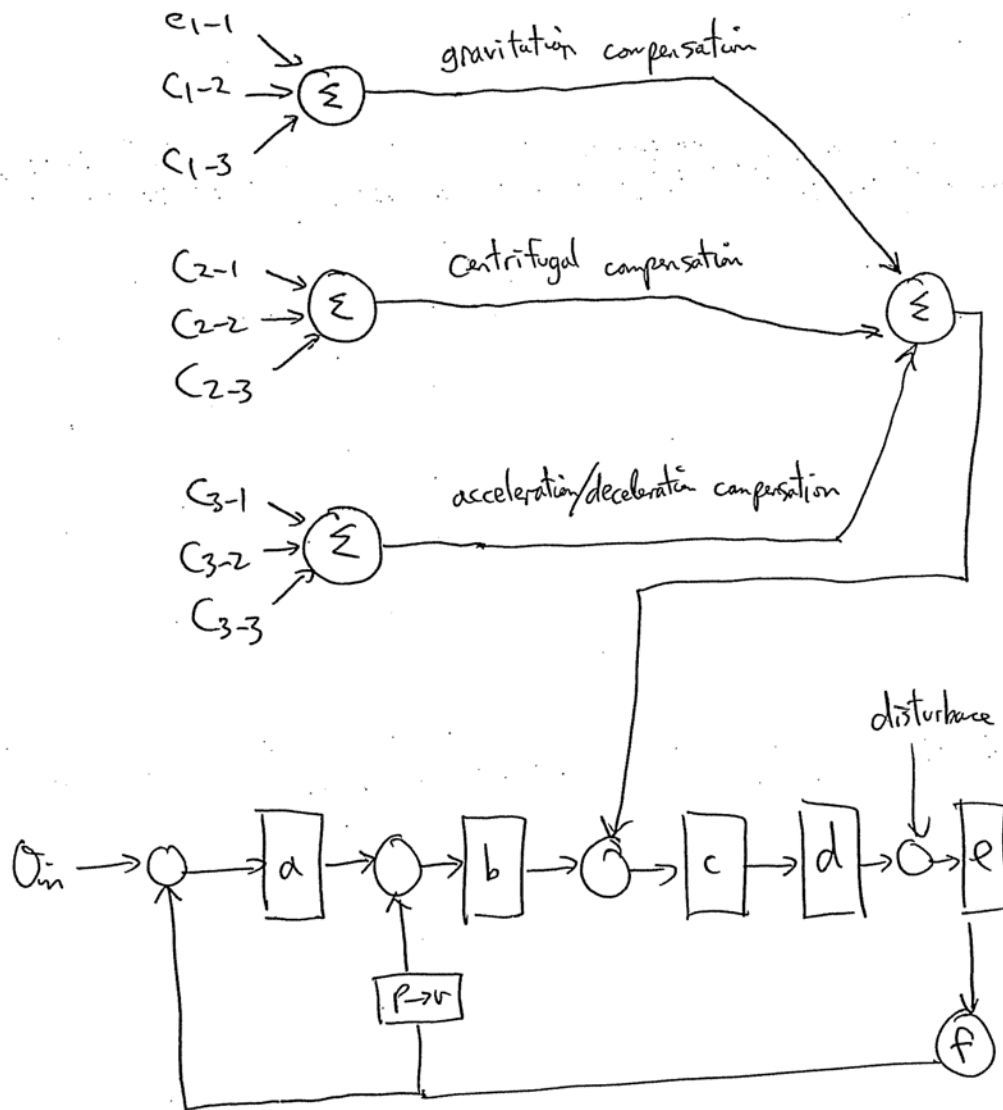 e1-1
C1-2
C1-3
Σ
gravitation compensation
C2-1
C2-2
C2-3
Σ
centrifugal compensation
Σ
C3-1
C3-2
C3-3
Σ
acceleration/deceleration compensation
disturbace
θin
a
b
c
d
e
P→v
f